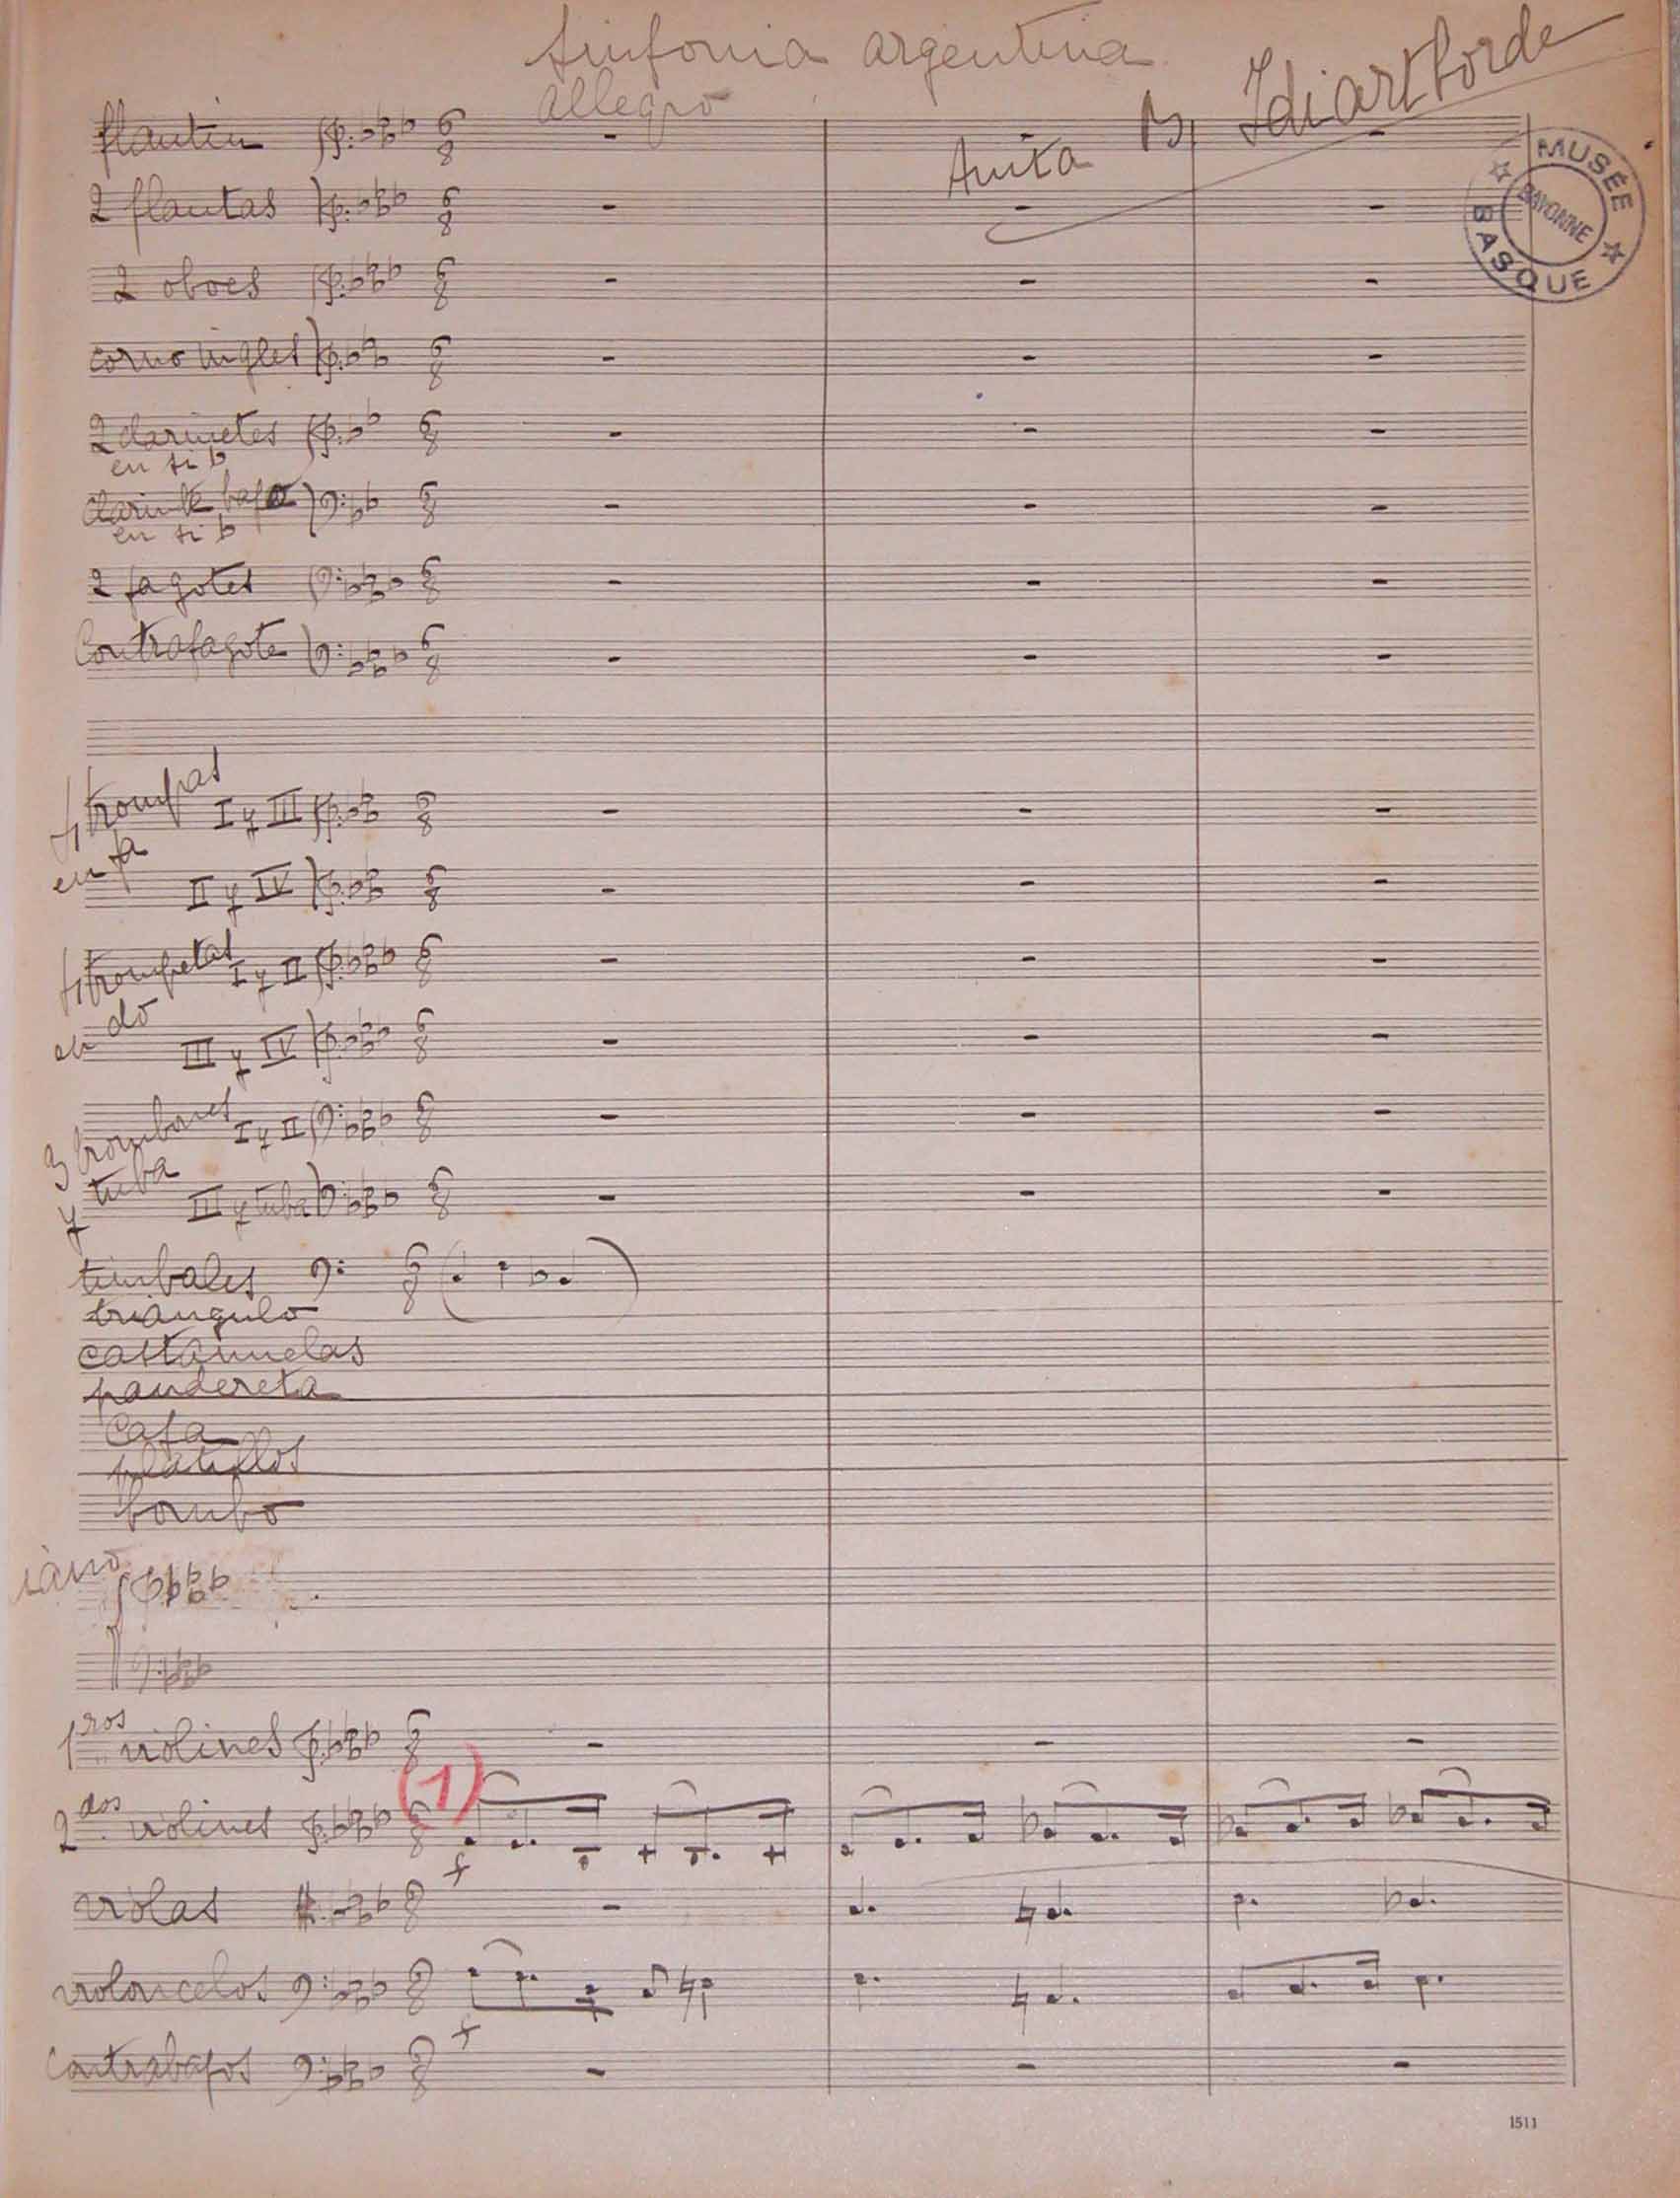 Sinfonia argentina
allegro
Anita B. Idiartborde
MUSÉE BASQUE
BAYONNE
flautin
2 flautas
2 oboes
corno ingles
2 clarinetes
en si b
clarinete bajo
en si b
2 fagotes
Contrafagote
4 trompas
en fa
I y III
II y IV
4 trompetas
en do
I y II
III y IV
3 trombones
y tuba
I y II
III y tuba
timbales
triangulo
castannuelas
pandereta
caja
platillos
bombo
iano
1ros violines
(1)
2dos violines
f
violas
violoncelos
f
Contrabajos
1511